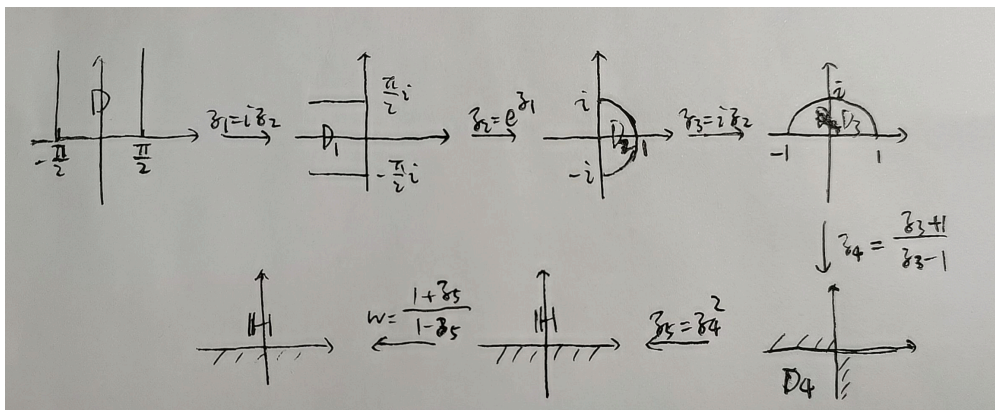 D
-π/2
π/2
z₁=iz₂
π/2 i
D₁
-π/2 i
z₂=e^z₁
i
D₂
1
-i
z₃=iz₂
i
D₃
-1
1
z₄ = (z₃+1)/(z₃-1)
D₄
z₅=z₄²
H
w=(1+z₅)/(1-z₅)
H